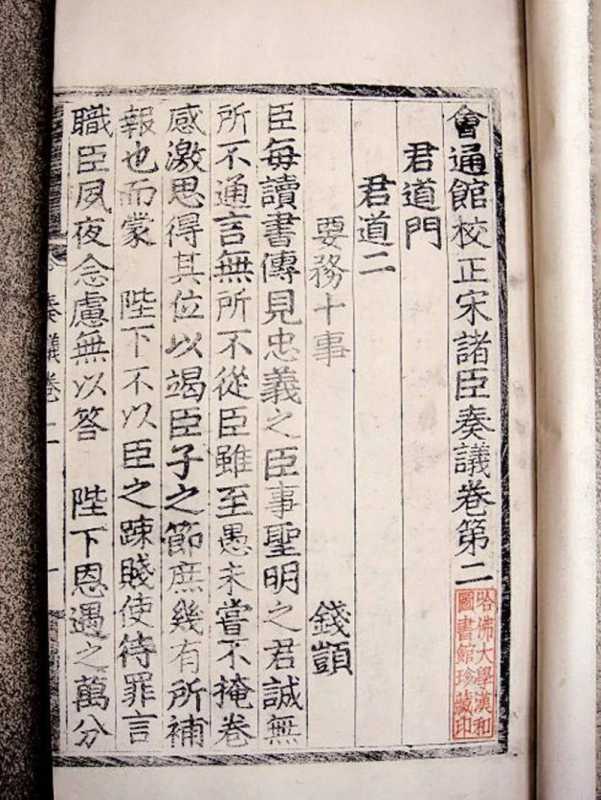 會通館校正宋諸臣奏議卷第二
哈佛大學漢和
圖書館珍藏印
君道門
君道二
要務十事 錢顗
臣每讀書傳見忠義之臣事聖明之君誠無
所不通言無所不從臣雖至愚未嘗不掩卷
感激思得其位以竭臣子之節庶幾有所補
報也而蒙 陛下不以臣之踈賤使待罪言
職臣夙夜念慮無以答 陛下恩遇之萬分
奏議卷二